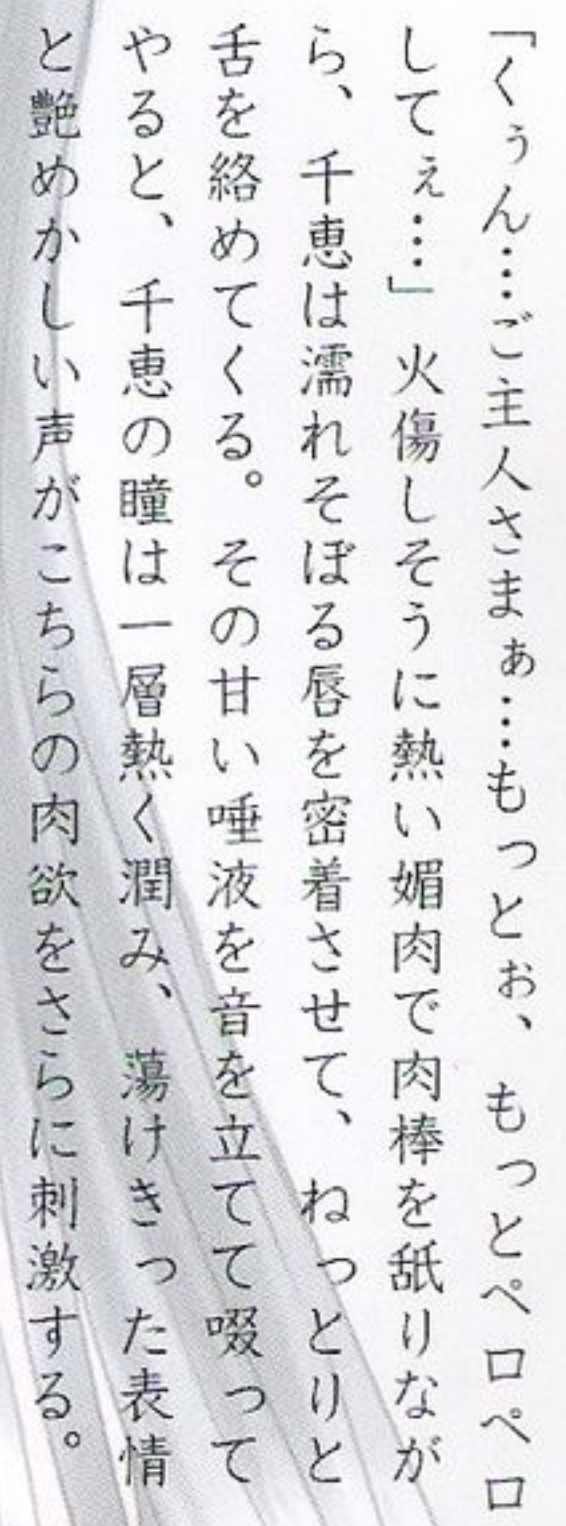 「くぅん…ご主人さまぁ…もっとぉ、もっとペロペロ
してぇ…」火傷しそうに熱い媚肉で肉棒を舐りなが
ら、千恵は濡れそぼる唇を密着させて、ねっとりと
舌を絡めてくる。その甘い唾液を音を立てて啜って
やると、千恵の瞳は一層熱く潤み、蕩けきった表情
と艶めかしい声がこちらの肉欲をさらに刺激する。